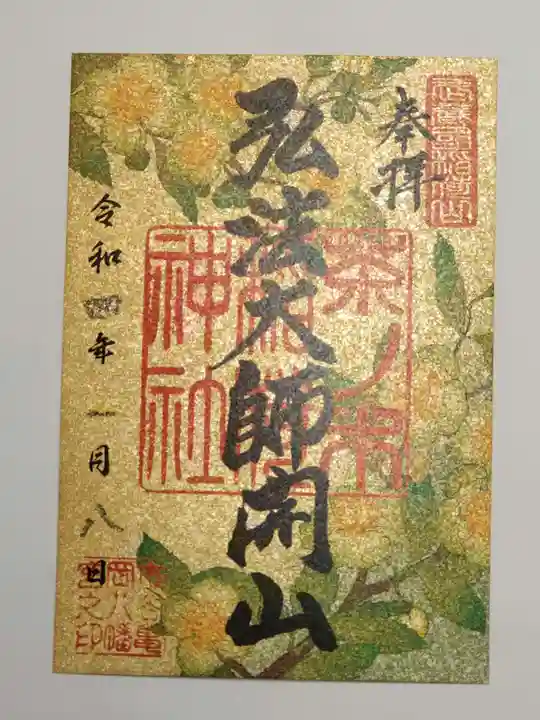 奉拝
弘法大師開山
茶ノ木
稲荷
神社
令和四年一月八日